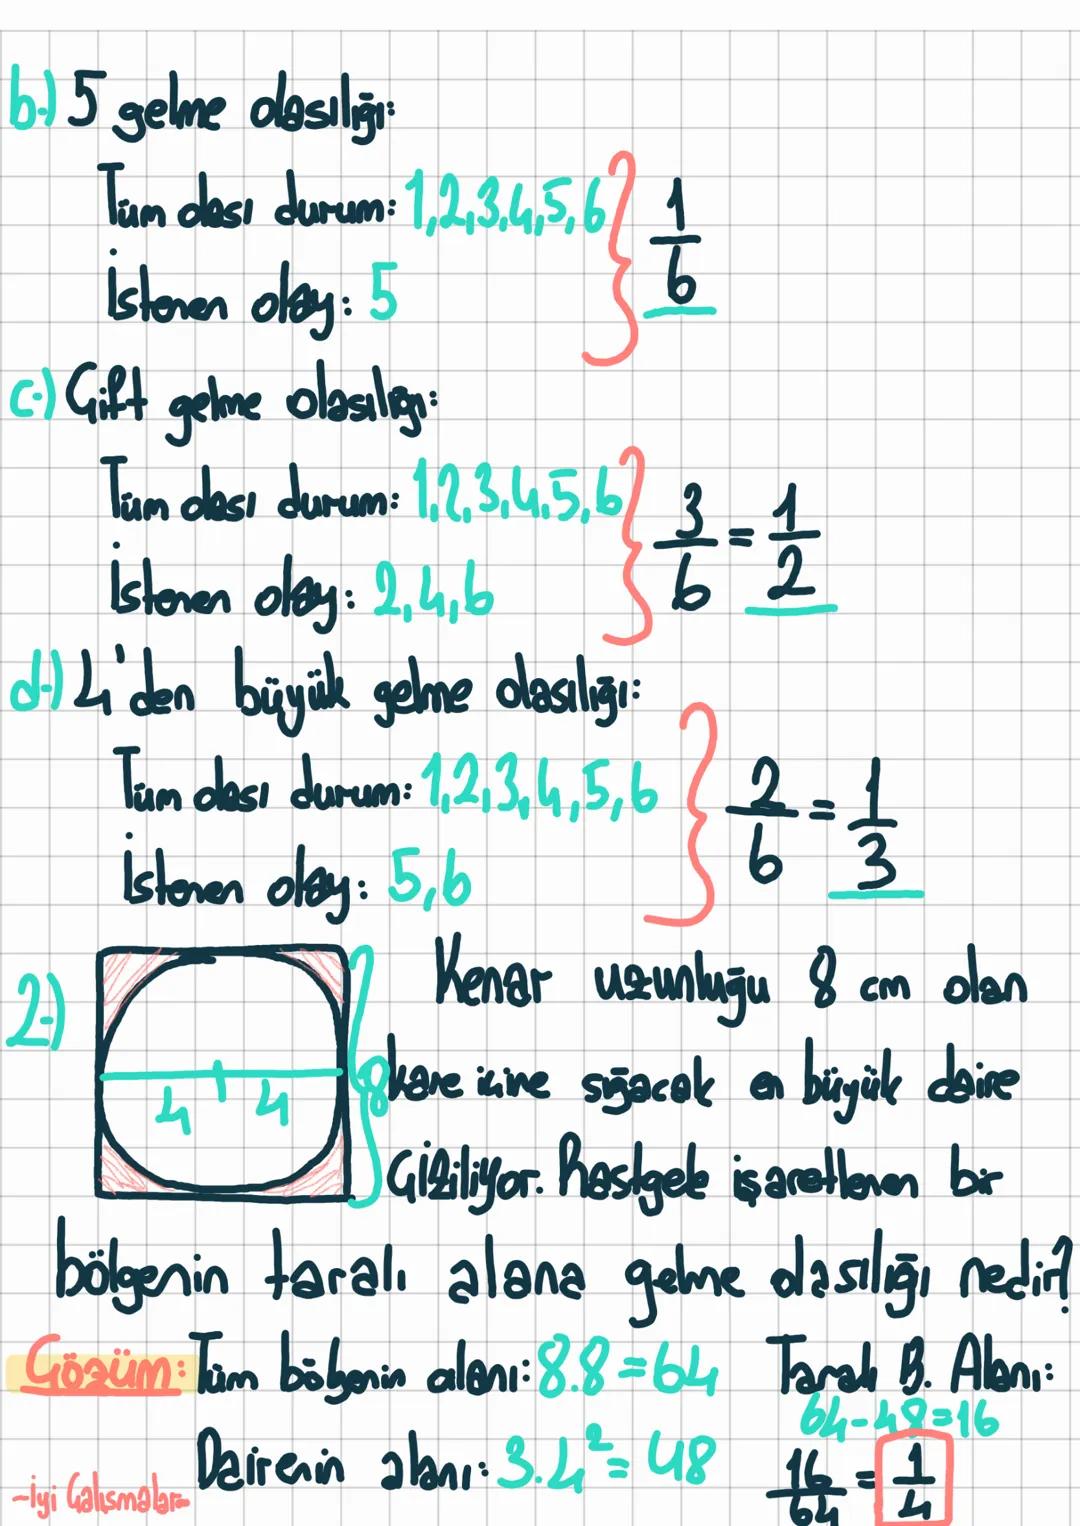 b-) 5 gelme olasılığı:
Tüm olası durum: 1,2,3,4,5,6
1/6
İstenen olay: 5
c-) Çift gelme olasılığı:
Tüm olası durum: 1,2,3,4,5,6
3/6 = 1/2
İstenen olay: 2,4,6
d-) 4'den büyük gelme olasılığı:
Tüm olası durum: 1,2,3,4,5,6
2/6 = 1/3
İstenen olay: 5,6
2-)
4 4
8
Kenar uzunluğu 8 cm olan
kare içine sığacak en büyük daire
Çiziliyor. Rastgele işaretlenen bir
bölgenin taralı alana gelme olasılığı nedir?
Çözüm: Tüm bölgenin alanı: 8.8=64 Taralı B. Alanı:
64-48=16
Dairenin alanı: 3.4²=48
16/64 = 1/4
-İyi Çalışmalar-